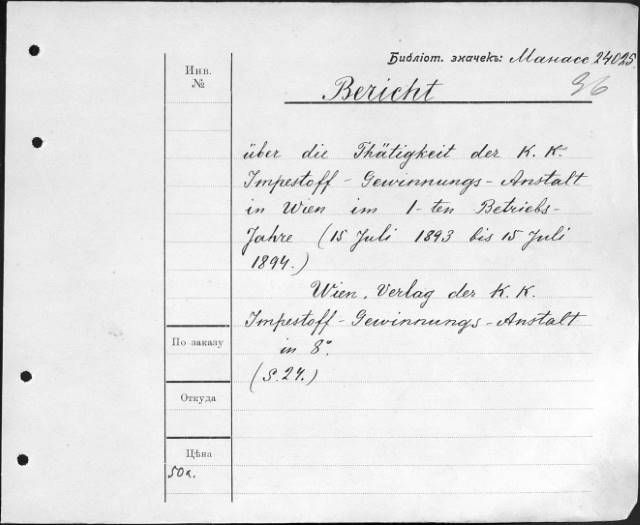 Библіот. значекъ: Манасс 24025
96
Инв.
№
Bericht
über die Thätigkeit der K. K.
Impestoff-Gewinnungs-Anstalt
in Wien im 1-ten Betriebs-
Jahre (15 Juli 1893 bis 15 Juli
1894.)
Wien. Verlag der K. K.
Impestoff-Gewinnungs-Anstalt
in 8°.
(S. 24.)
По заказу
Откуда
Цѣна
50к.